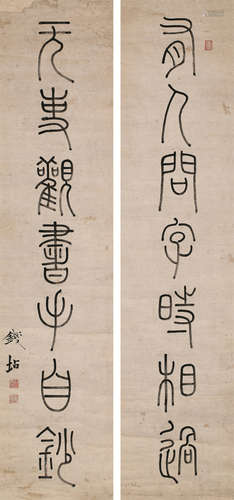 有人問字時相過
无事觀書手自鈔
錢坫